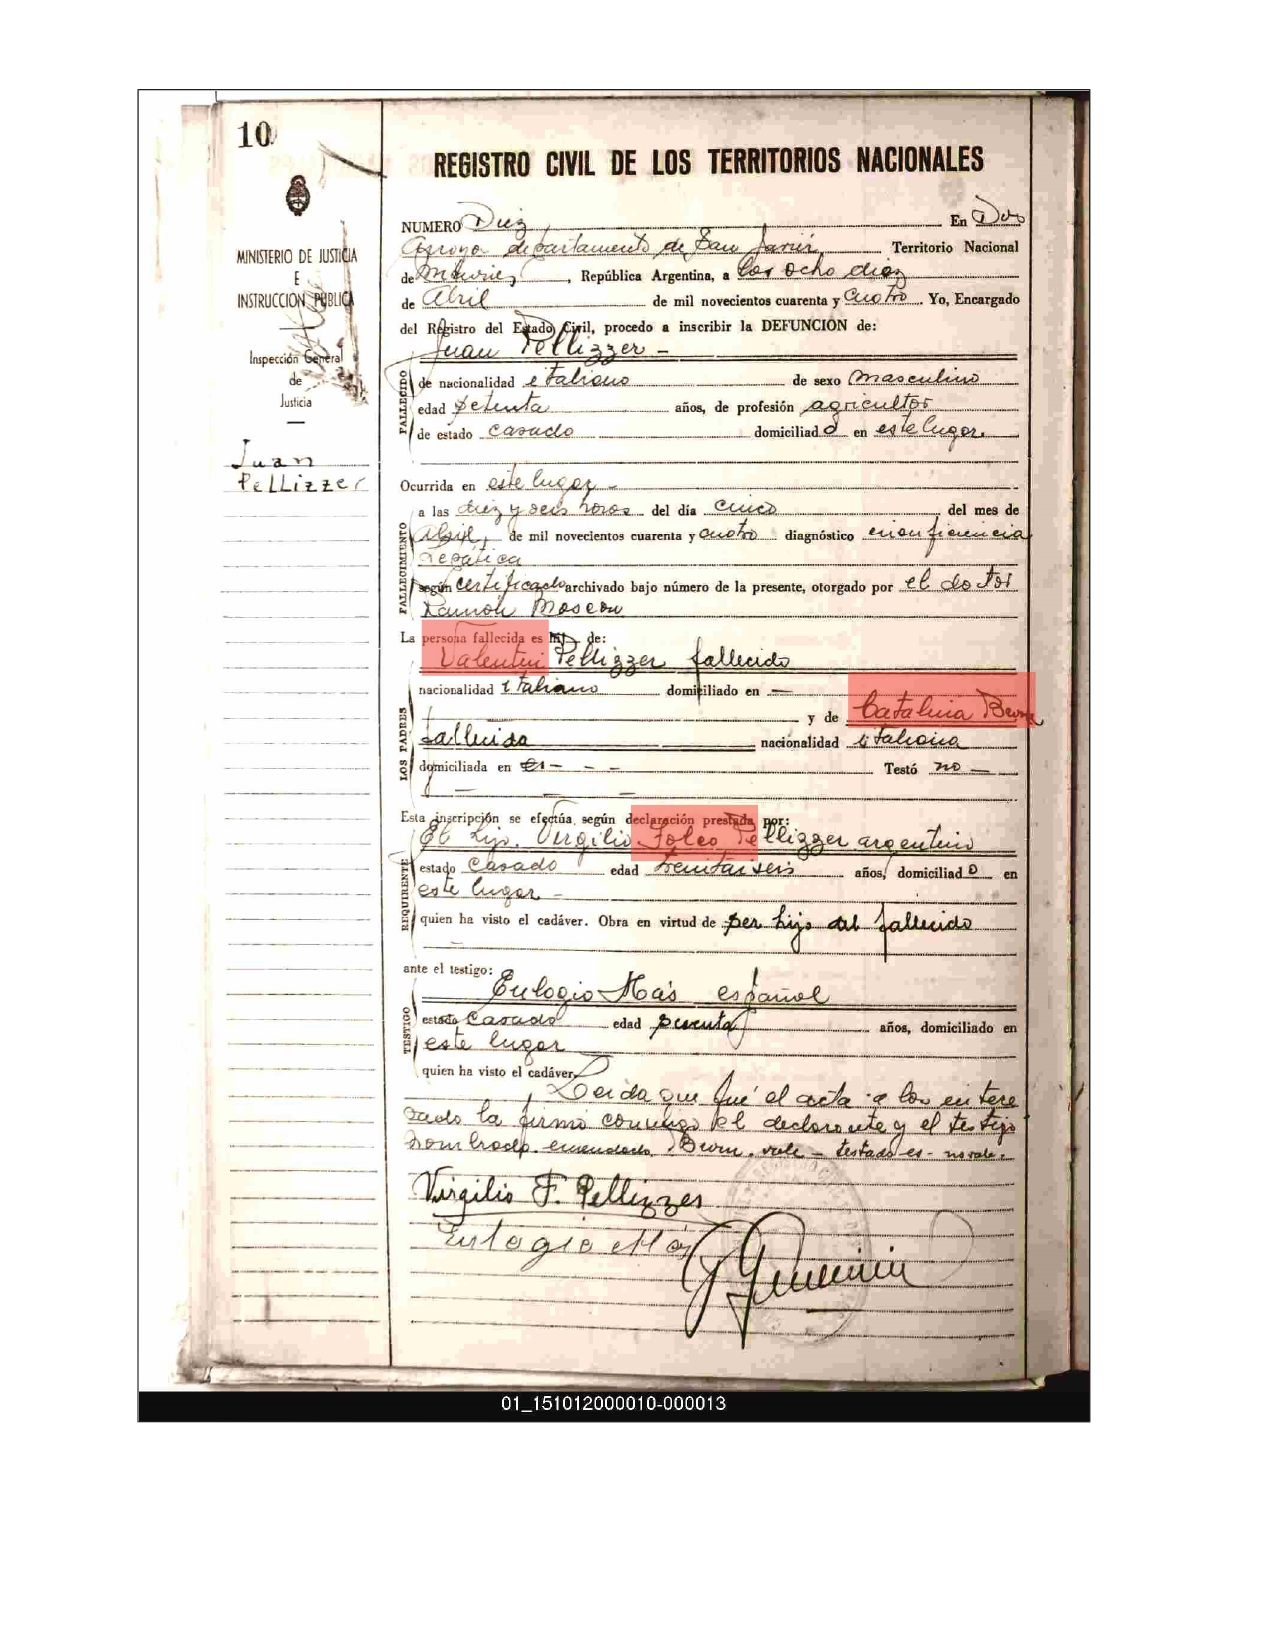 10
REGISTRO CIVIL DE LOS TERRITORIOS NACIONALES
MINISTERIO DE JUSTICIA
E
INSTRUCCION PUBLICA
Inspección General
de
Justicia
Juan
Pellizzer
NUMERO Diez En Dos
Arroyos departamento de San Javier Territorio Nacional
de Misiones, República Argentina, a los ocho dias
de Abril de mil novecientos cuarenta y cuatro. Yo, Encargado
del Registro del Estado Civil, procedo a inscribir la DEFUNCION de:
Juan Pellizzer -
FALLECIDO
de nacionalidad italiano de sexo masculino
edad setenta años, de profesión agricultor
de estado casado domiciliado en este lugar.
Ocurrida en este lugar -
FALLECIMIENTO
a las diez y seis horas del día cinco del mes de
Abril, de mil novecientos cuarenta y cuatro diagnóstico insuficiencia
hepática
según certificado archivado bajo número de la presente, otorgado por el doctor
Ramón
La persona fallecida es hij de:
LOS PADRES
Valentin Pellizzer fallecido
nacionalidad italiano domiciliado en —
y de Catalina
fallecida nacionalidad italiana
domiciliada en - - - Testó no —
Esta inscripción se efectúa, según declaración prestada por:
REQUIRENTE
El hijo. Virgilio Foleo Pellizzer argentino
estado casado edad treintaiseis años, domiciliado en
este lugar -
quien ha visto el cadáver. Obra en virtud de ser hijo del fallecido
ante el testigo:
TESTIGO
Eulogio Más español
estado casado edad años, domiciliado en
este lugar
quien ha visto el cadáver.
Leida que fué el acta a los intere
sado la firma conmigo el declarante y el testigo
nombrado. enmendado. vale - testado es - no vale.
Virgilio F. Pellizzer
Eulogio Más
01_151012000010-000013